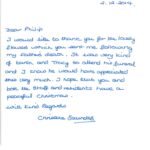 2.12.2014
Dear Philip
I would like to thank you for the lovely
flowers which you sent me following
my fathers death. It was very kind
of Gavin, and Tracy to attend his funeral
and I know he would have appreciated
this very much. I hope that you and
both the staff and residents have a
peaceful Christmas.
With Kind Regards
Christine Saunders